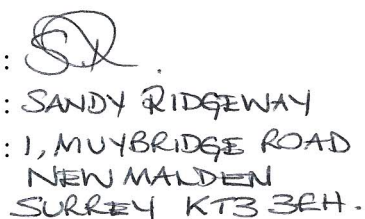 :
: SANDY RIDGEWAY
: 1, MUYBRIDGE ROAD
NEW MALDEN
SURREY KT3 3EH.